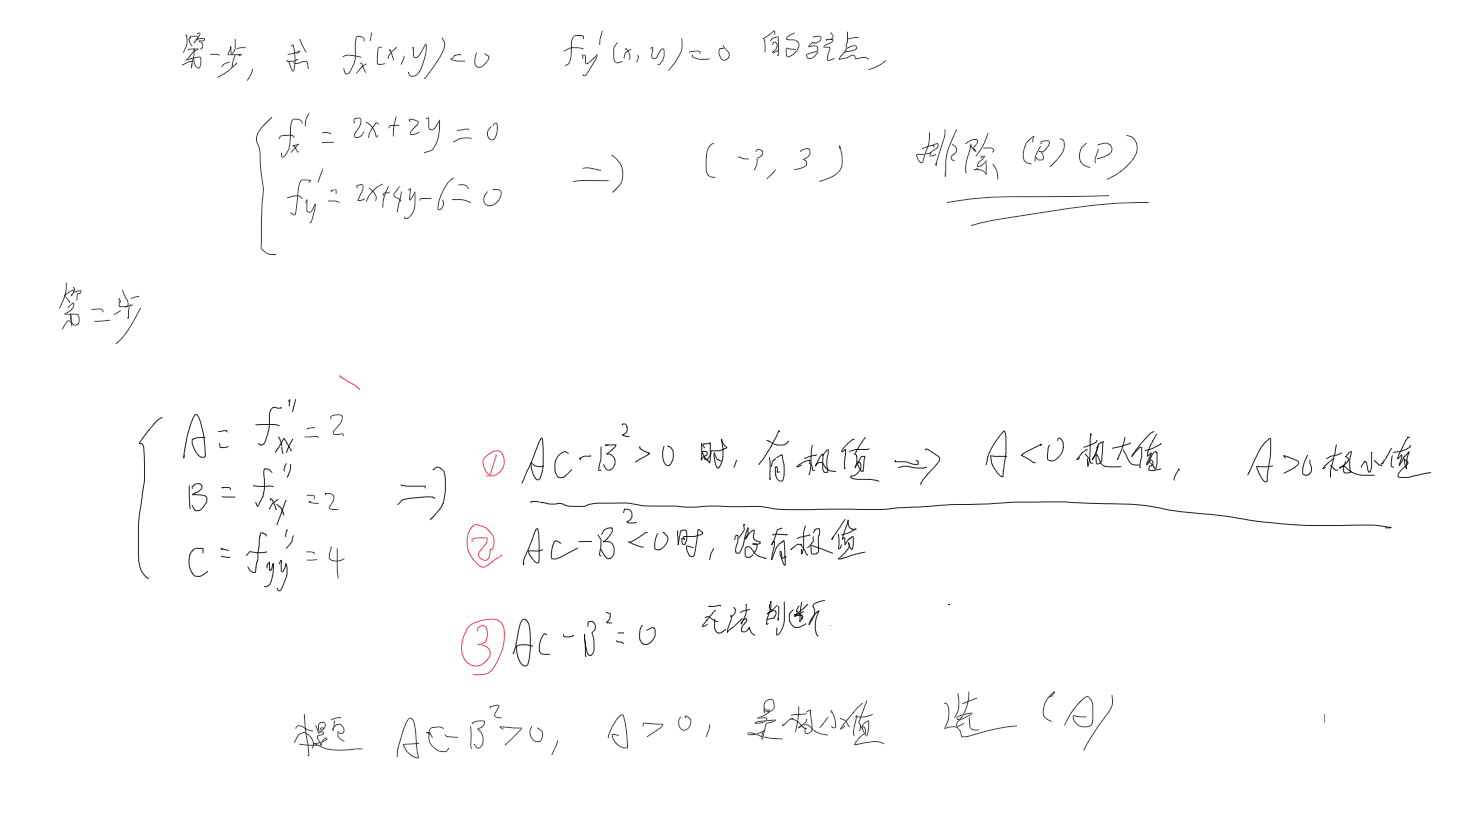 第一步, 求 fx'(x,y)=0 fy'(x,y)=0 的驻点,
fx' = 2x+2y = 0
fy' = 2x+4y-6=0
=> (-3, 3) 排除 (B)(D)
第二步
A = fxx'' = 2
B = fxy'' = 2
C = fyy'' = 4
=> ① AC-B²>0 时, 有极值 => A<0 极大值, A>0 极小值
② AC-B²<0时, 没有极值
③ AC-B²=0 无法判断.
本题 AC-B²>0, A>0, 是极小值 选 (A)